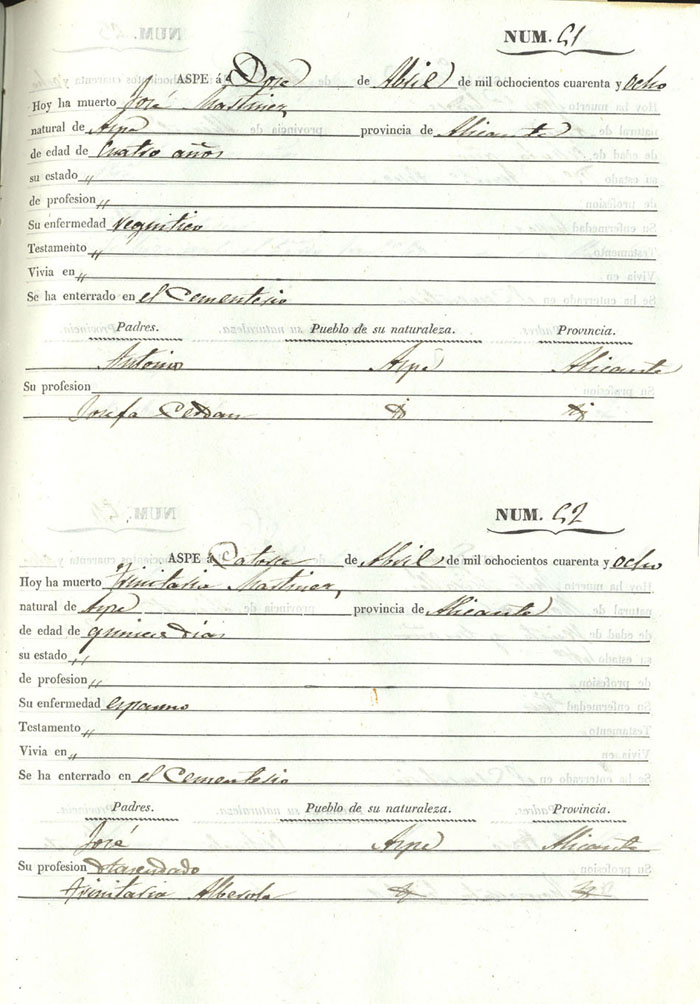 NUM. 51
ASPE á Doze de Abril de mil ochocientos cuarenta y ocho
Hoy ha muerto José Martinez
natural de Aspe provincia de Alicante
de edad de cuatro años
su estado „
de profesion „
Su enfermedad
Testamento „
Vivia en „
Se ha enterrado en el Cementerio
Padres. Pueblo de su naturaleza. Provincia.
Antonio Aspe Alicante
Su profesion
Josefa
NUM. 52
ASPE á Catorce de Abril de mil ochocientos cuarenta y ocho
Hoy ha muerto Trinitaria Martinez
natural de Aspe provincia de Alicante
de edad de quince dias
su estado „
de profesion „
Su enfermedad espasmo
Testamento „
Vivia en „
Se ha enterrado en el Cementerio
Padres. Pueblo de su naturaleza. Provincia.
José Aspe Alicante
Su profesion
Trinitaria Alberola